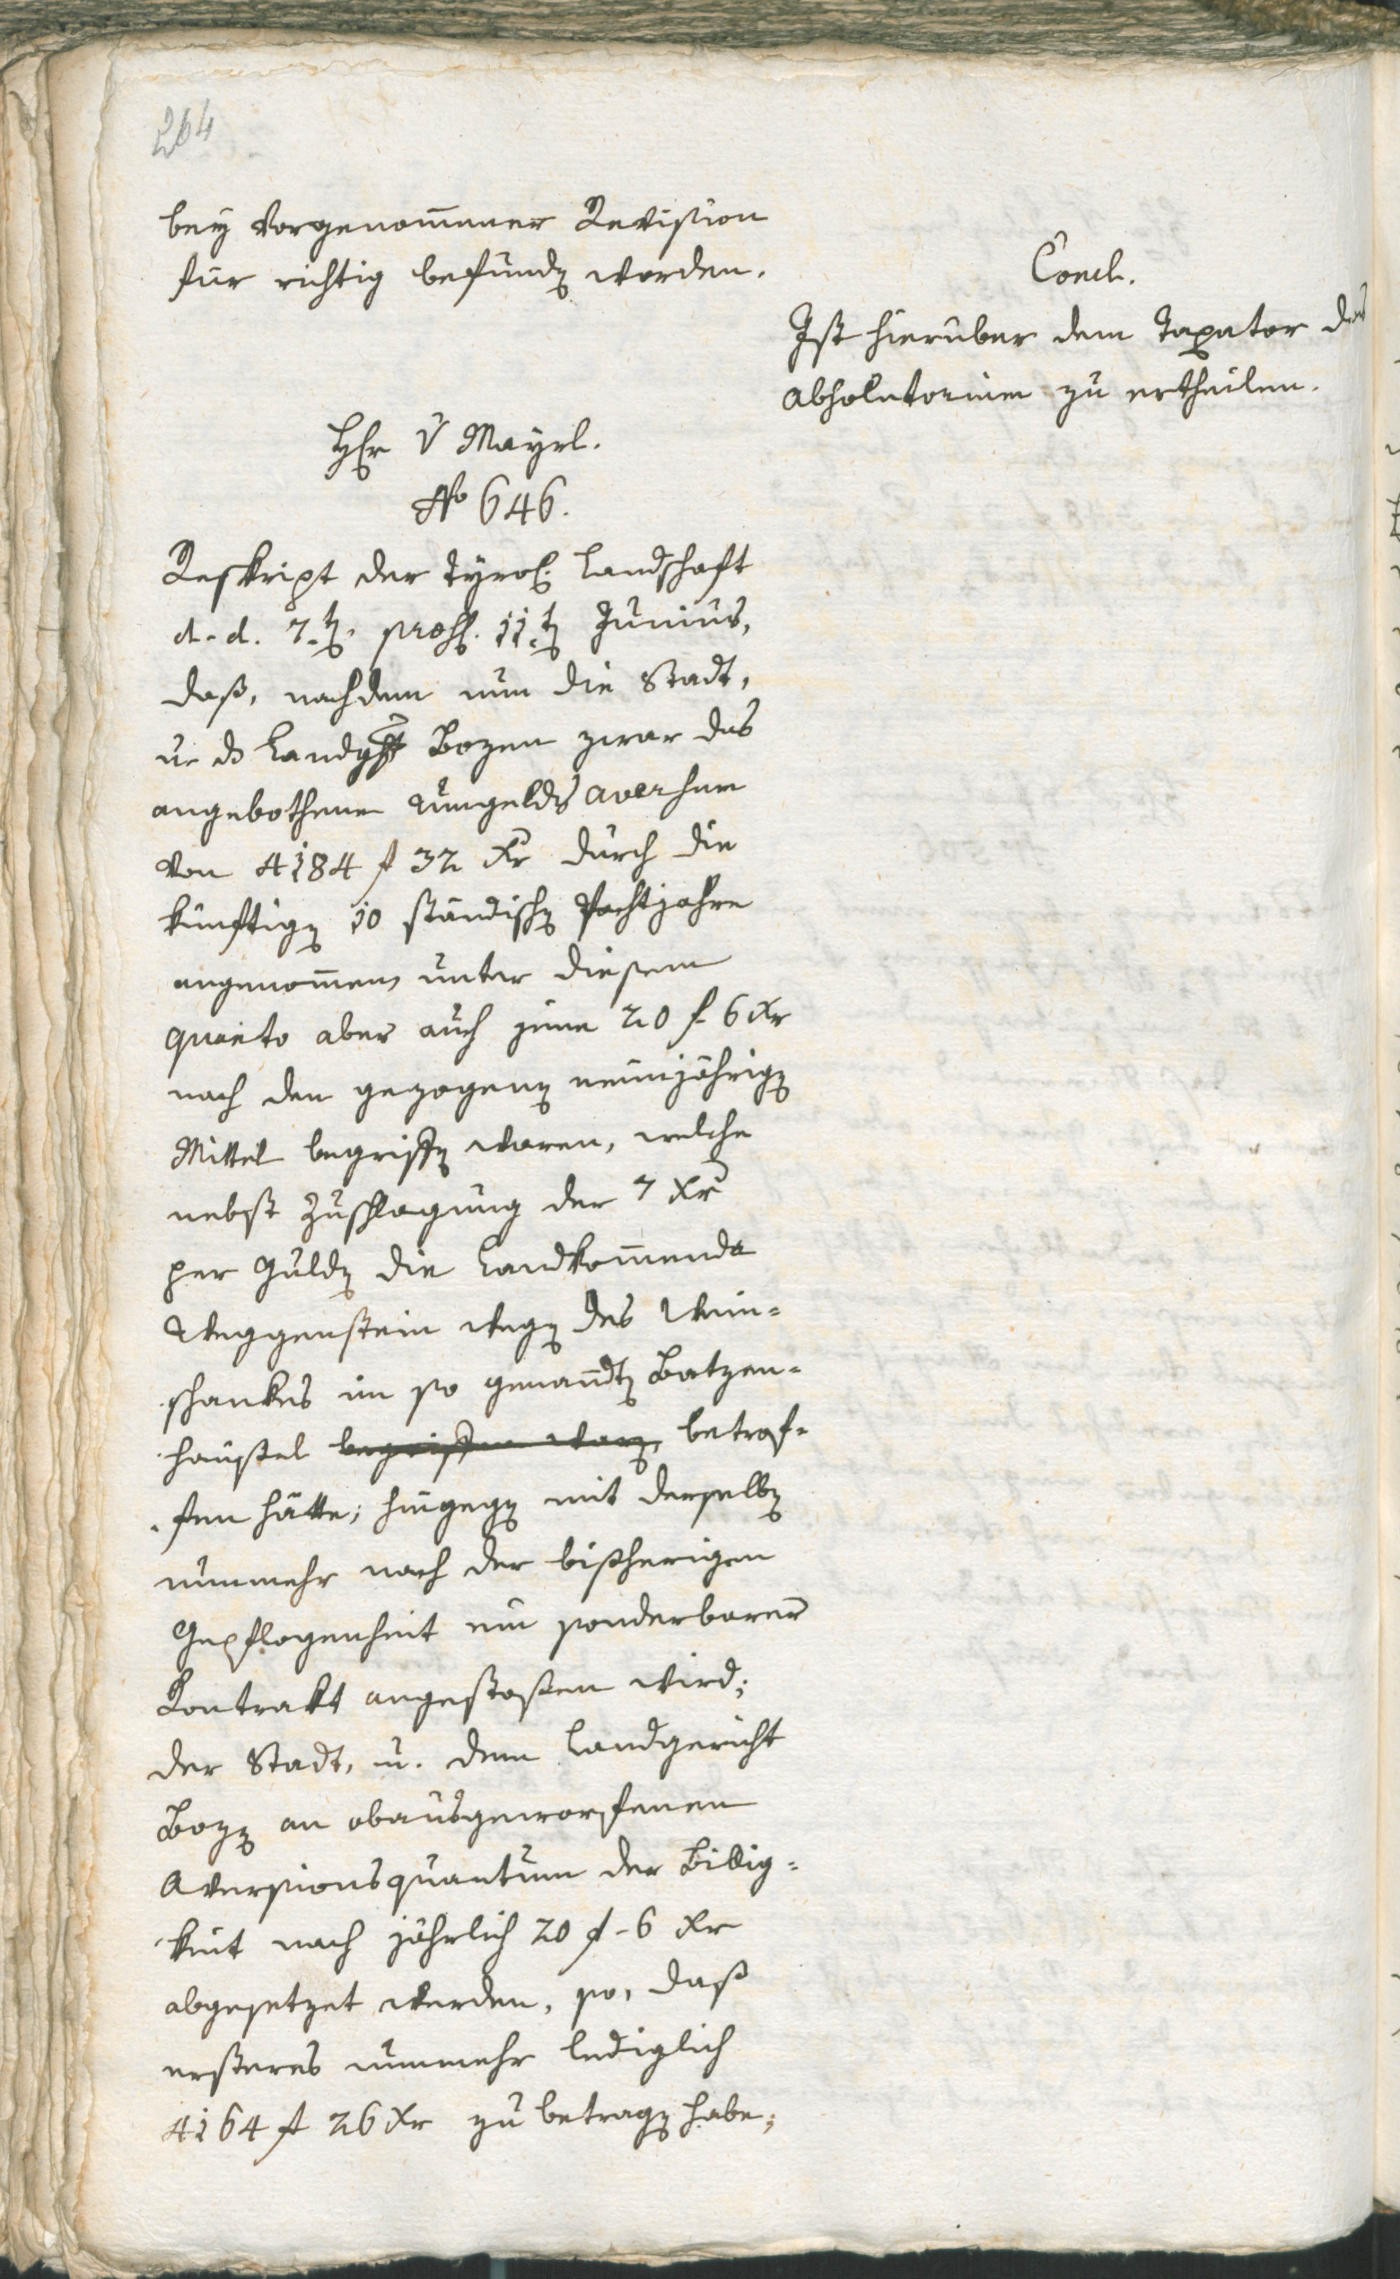 264
bey vorgenommener Revision
für richtig befunden worden.
Concl.
Ist hierüber dem Taxator das
Absolutorium zu ertheilen.
Hr v Mayrl.
No 646.
Reskript der Tyrol. Landschaft
d. d. 7.ten, präs. 11.ten Junius,
daß, nachdem nun die Stadt,
u. ds Landgcht Bozen zwar das
angebothene Umgelds Aversum
von 4184 f 32 Xr durch die
künftigen 10 ständischen Pachtjahre
angenommen, unter diesem
Quanto aber auch jene 20 f. 6 Xr
nach den gezogenen neunjährigen
Mittel begriffen waren, welche
nebst Zuschlagung der 7 Xr
per Gulden die Landkommenda
Weggenstein wegen des Wein-
schankes im so genandten Batzen-
häusel begriffen waren, betrof-
fen hätte; hingegen mit derselben
nunmehr nach der bißherigen
Gepflogenheit ein sonderbarer
Kontrakt angestoßen wird;
der Stadt, u. dem Landgericht
Bozen an obausgeworfenen
Aversionsquantum der Billig-
keit nach jährlich 20 f - 6 Xr
abgesetzet werden, so, daß
ersteres nunmehr lediglich
4164 f 26 Xr zu betragen habe;